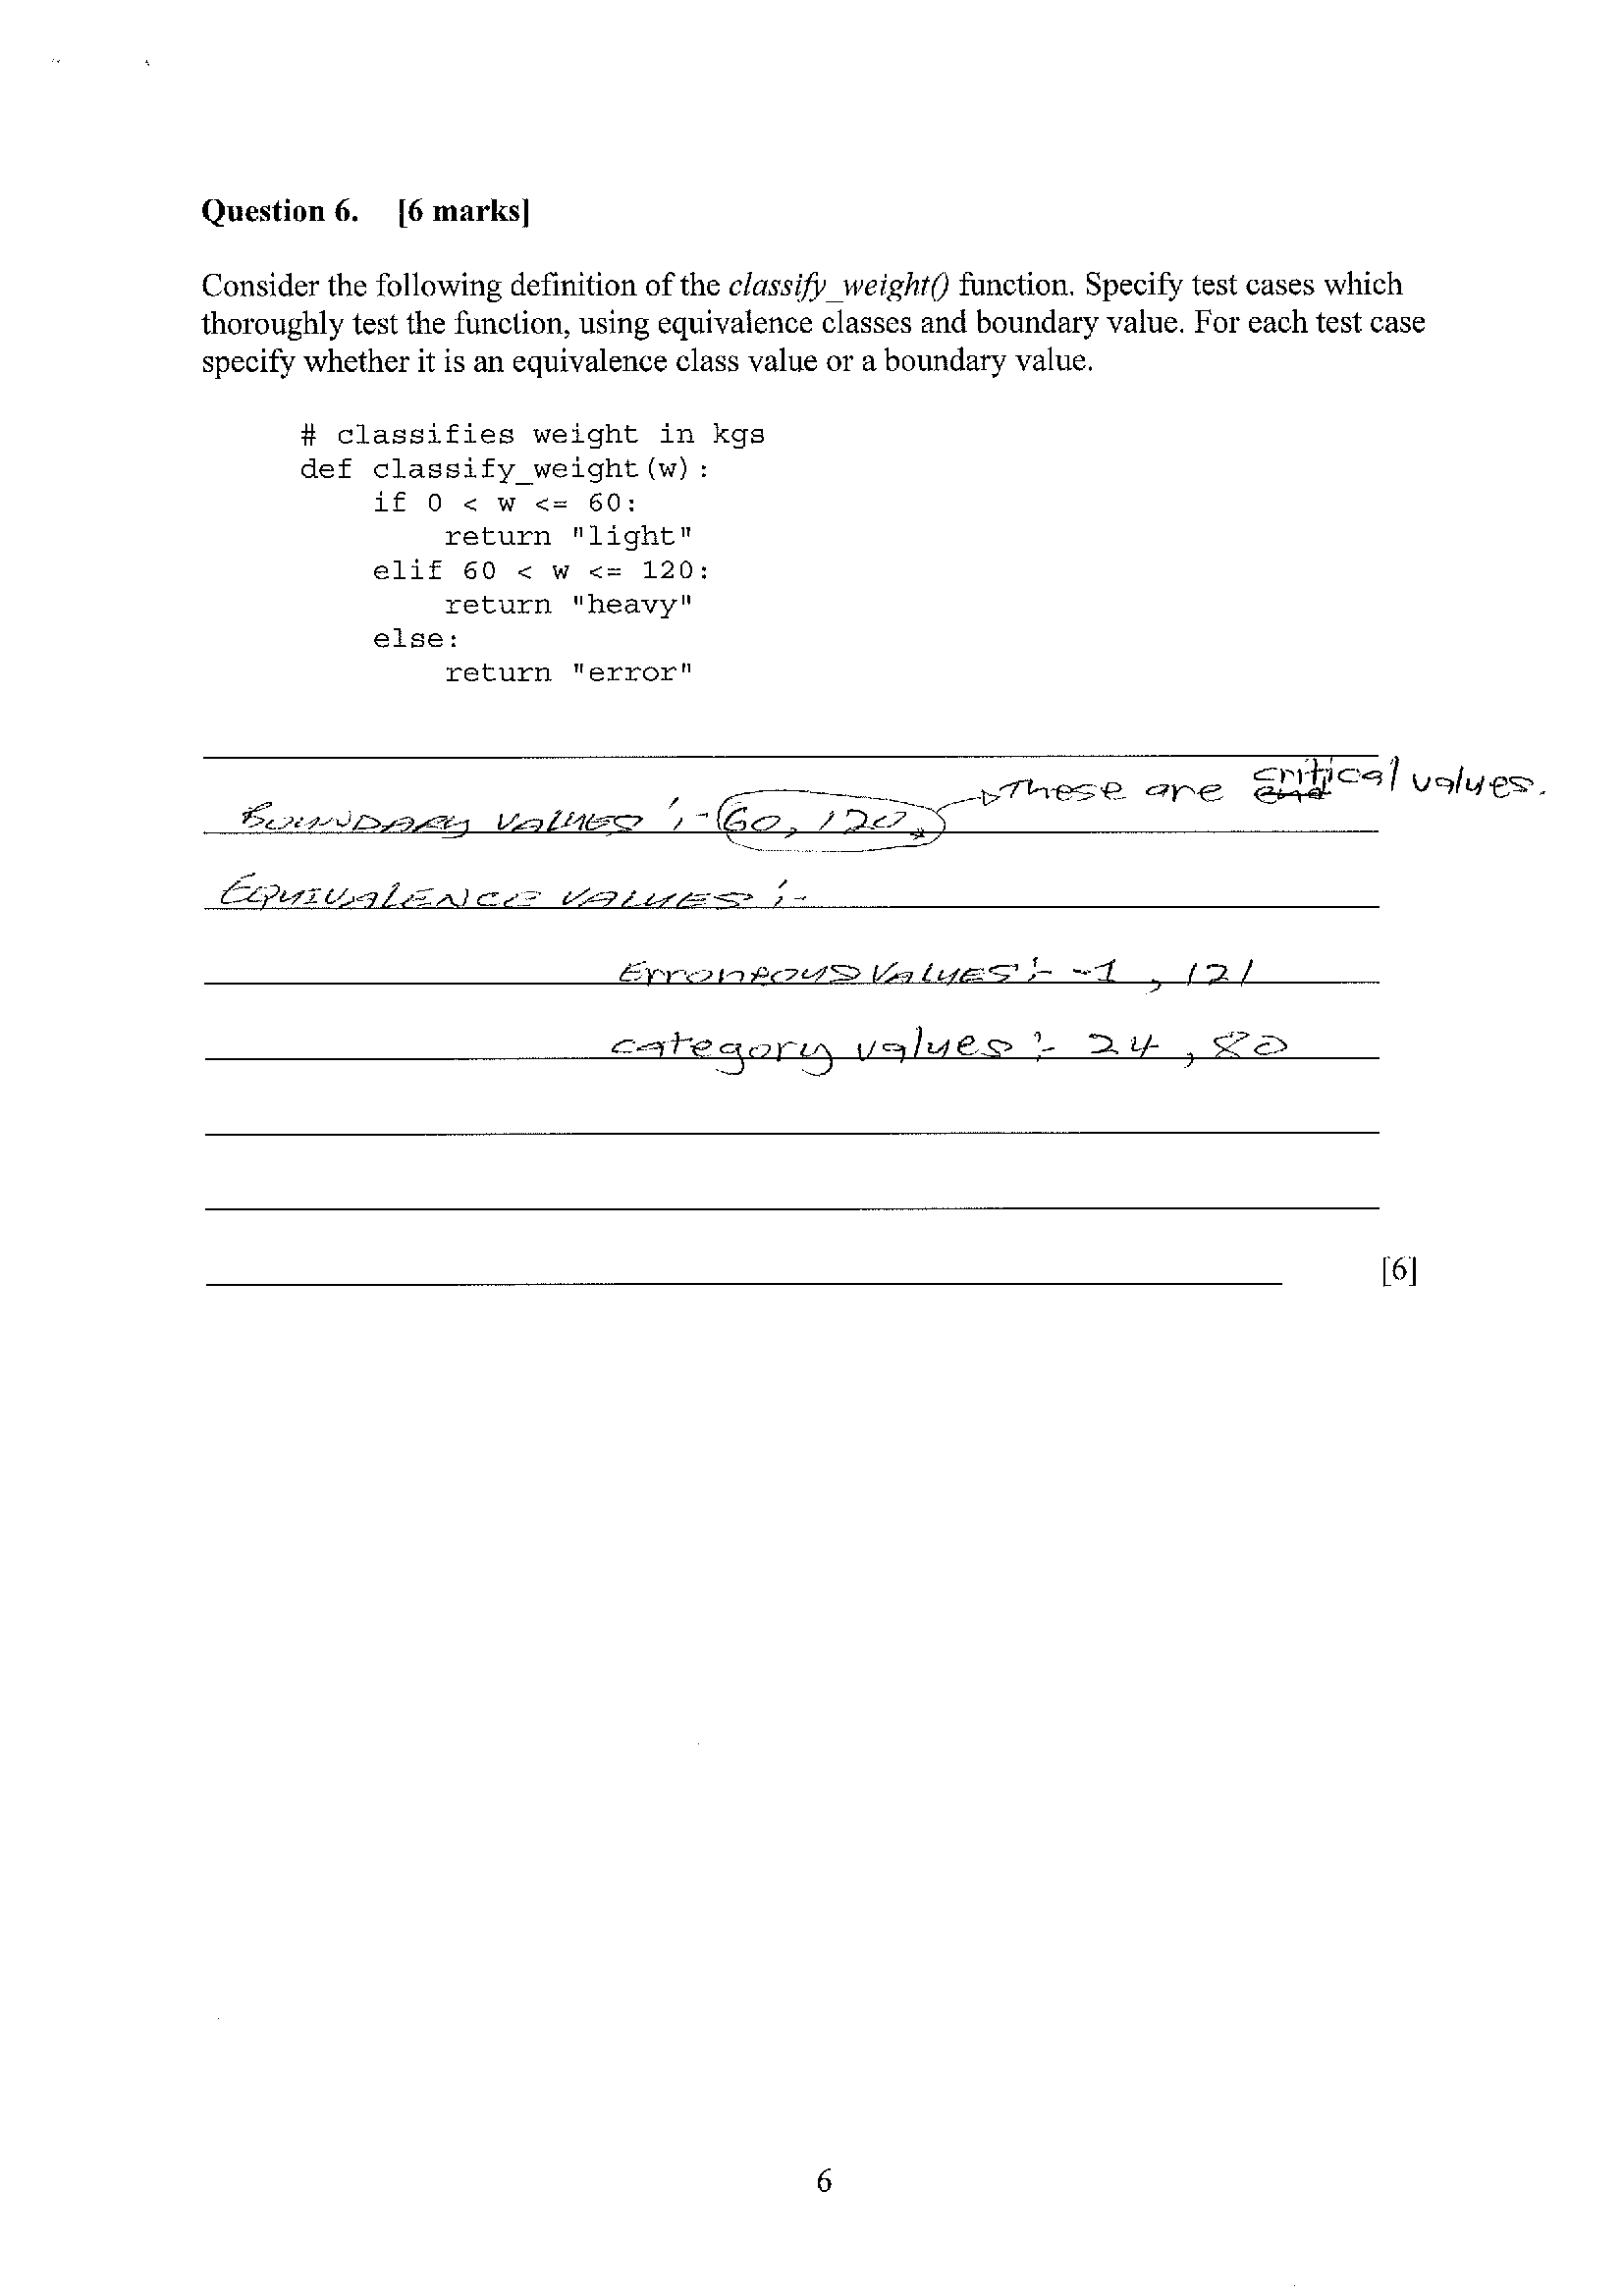 Question 6. [6 marks]
Consider the following definition of the classify_weight() function. Specify test cases which
thoroughly test the function, using equivalence classes and boundary value. For each test case
specify whether it is an equivalence class value or a boundary value.
# classifies weight in kgs
def classify_weight(w):
    if 0 < w <= 60:
        return "light"
    elif 60 < w <= 120:
        return "heavy"
    else:
        return "error"
These are critical values.
BOUNDARY VALUES :- 60, 120,
EQUIVALENCE VALUES :-
Erroneous VALUES :- -1 , 121
category values :- 24 , 80
[6]
6